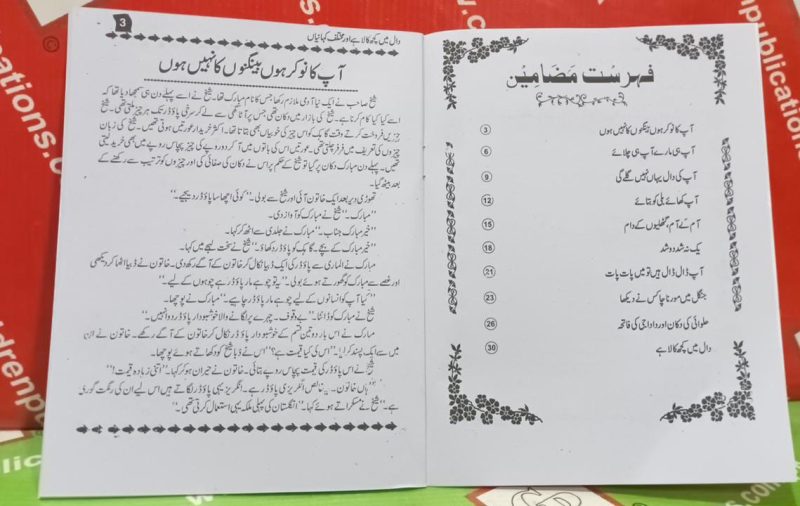 فہرست مضامین
آپ کا نوکر ہوں بینگنوں کا نہیں ہوں 3
آپ ہی مارے آپ ہی چلائے 6
آپ کی دال یہاں نہیں گلے گی 9
آپ کھائے بلی کو بتائے 12
آم کے آم، گٹھلیوں کے دام 15
یک نہ شد دو شد 18
آپ ڈال ڈال ہیں تو میں پات پات 21
جنگل میں مور ناچا کس نے دیکھا 23
حلوائی کی دکان اور دادا جی کی فاتحہ 26
دال میں کچھ کالا ہے 30
3
دال میں کچھ کالا ہے اور مختلف کہانیاں
آپ کا نوکر ہوں بینگنوں کا نہیں ہوں
شیخ صاحب نے ایک نیا آدمی ملازم رکھا جس کا نام مبارک تھا۔ شیخ نے اسے پہلے دن ہی سمجھا دیا تھا کہ
اسے کیا کیا کام کرنا ہے۔ شیخ کی بازار میں دکان تھی جس پر آٹا گھی سے لے کر سرخی پاؤڈر تک ہر چیز ملتی تھی۔ شیخ
چیزیں فروخت کرتے وقت گاہک کو اس چیز کی خوبیاں بھی بتاتا تھا۔ اکثر خریدار عورتیں ہوتی تھیں۔ شیخ کی زبان
چیزوں کی تعریف میں فرفر چلتی تھی۔ عورتیں اس کی باتوں میں آ کر دو روپے کی چیز پچاس روپے میں بھی خرید لیتی
تھیں۔ پہلے دن مبارک دکان پر گیا تو شیخ کے حکم پر اس نے دکان کی صفائی کی اور چیزوں کو ترتیب سے رکھنے کے
بعد بیٹھ گیا۔
تھوڑی دیر بعد ایک خاتون آئی اور شیخ سے بولی۔ ’’کوئی اچھا سا پاؤڈر دیجیے۔‘‘
’’مبارک۔‘‘ شیخ نے مبارک کو آواز دی۔
’’خیر مبارک جناب۔‘‘ مبارک نے جلدی سے اٹھ کر کہا۔
’’خیر مبارک کے بچے۔ گاہک کو پاؤڈر دکھاؤ۔‘‘ شیخ نے سخت لہجے میں کہا۔
مبارک نے الماری سے پاؤڈر کی ایک ڈبیا نکال کر خاتون کے آگے رکھ دی۔ خاتون نے ڈبیا اٹھا کر دیکھی
اور غصے سے مبارک کو گھورتے ہوئے بولی۔ ’’یہ تو چوہے مار پاؤڈر ہے چوہوں کے لیے۔‘‘
’’کیا آپ کو انسانوں کے لیے چوہے مار پاؤڈر چاہیے۔‘‘ مبارک نے پوچھا۔
شیخ نے مبارک کو ڈانٹا۔ ’’بے وقوف۔ چہرے پر لگانے والا خوشبودار پاؤڈر دو انہیں۔‘‘
مبارک نے اس بار دو تین قسم کے خوشبودار پاؤڈر نکال کر خاتون کے آگے رکھے۔ خاتون نے ان
میں سے ایک پسند کر لیا۔ ’’اس کی کیا قیمت ہے؟‘‘ اس نے ڈبا شیخ کو دکھاتے ہوئے پوچھا۔
شیخ نے اس پاؤڈر کی قیمت پچاس روپے بتائی۔ خاتون نے حیران ہو کر کہا۔ ’’اتنی زیادہ قیمت!‘‘
’’ہاں خاتون۔ یہ خالص انگریزی پاؤڈر ہے۔ انگریز یہی پاؤڈر لگاتے ہیں اس لیے ان کی رنگت گوری
ہے۔‘‘ شیخ نے مسکراتے ہوئے کہا۔ ’’انگلستان کی پہلی ملکہ یہی استعمال کرتی تھی۔‘‘
publications.com